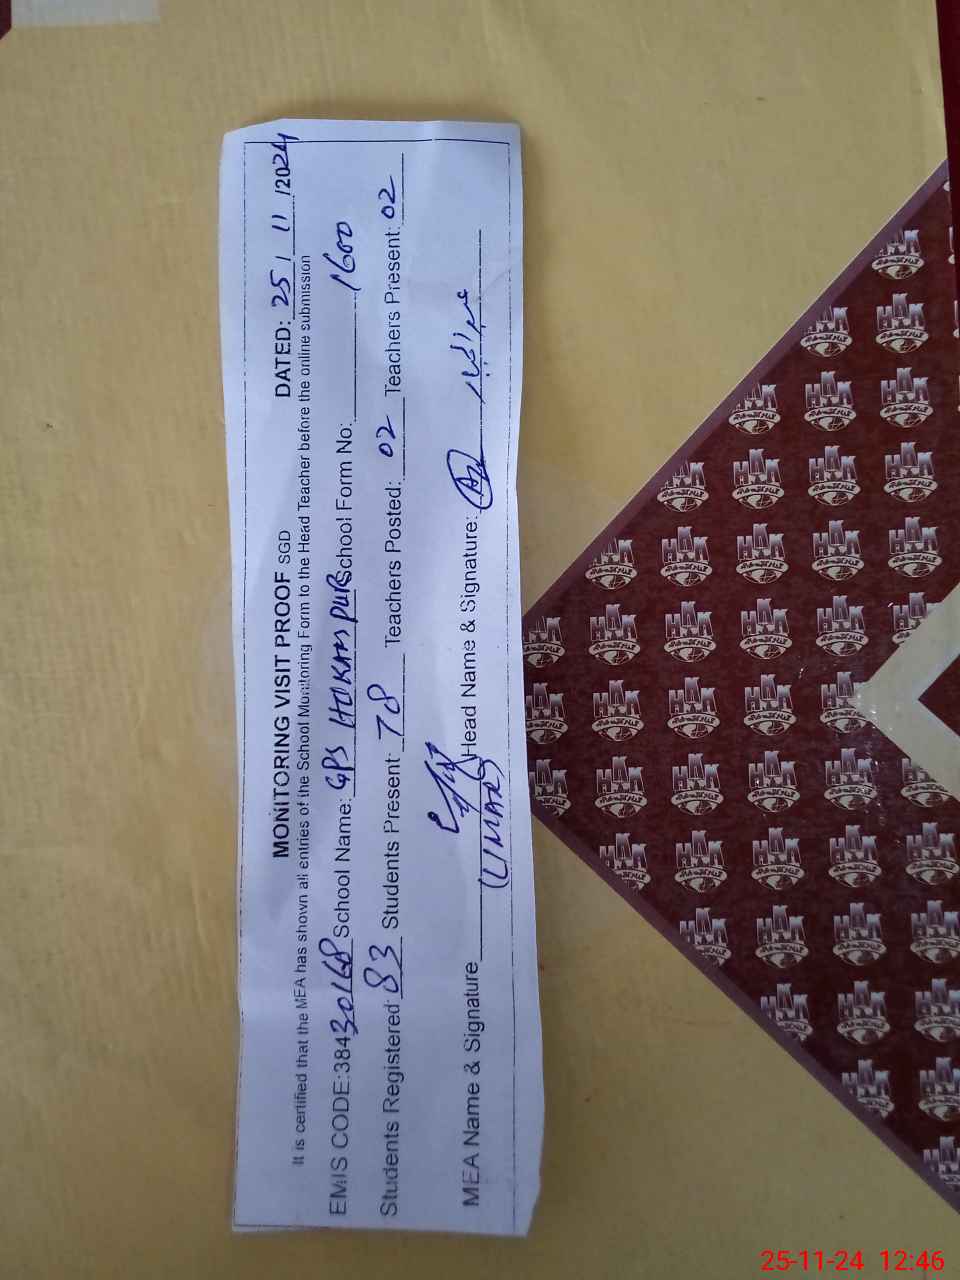 MONITORING VISIT PROOF SGD DATED: 25 / 11 /2024
It is certified that the MEA has shown all entries of the School Monitoring Form to the Head Teacher before the online submission
EMIS CODE:38430168 School Name: GPS HOKAM PUR School Form No: 1600
Students Registered: 83 Students Present: 78 Teachers Posted: 02 Teachers Present: 02
MEA Name & Signature (UMAR) Head Name & Signature:
HAK
25-11-24 12:46